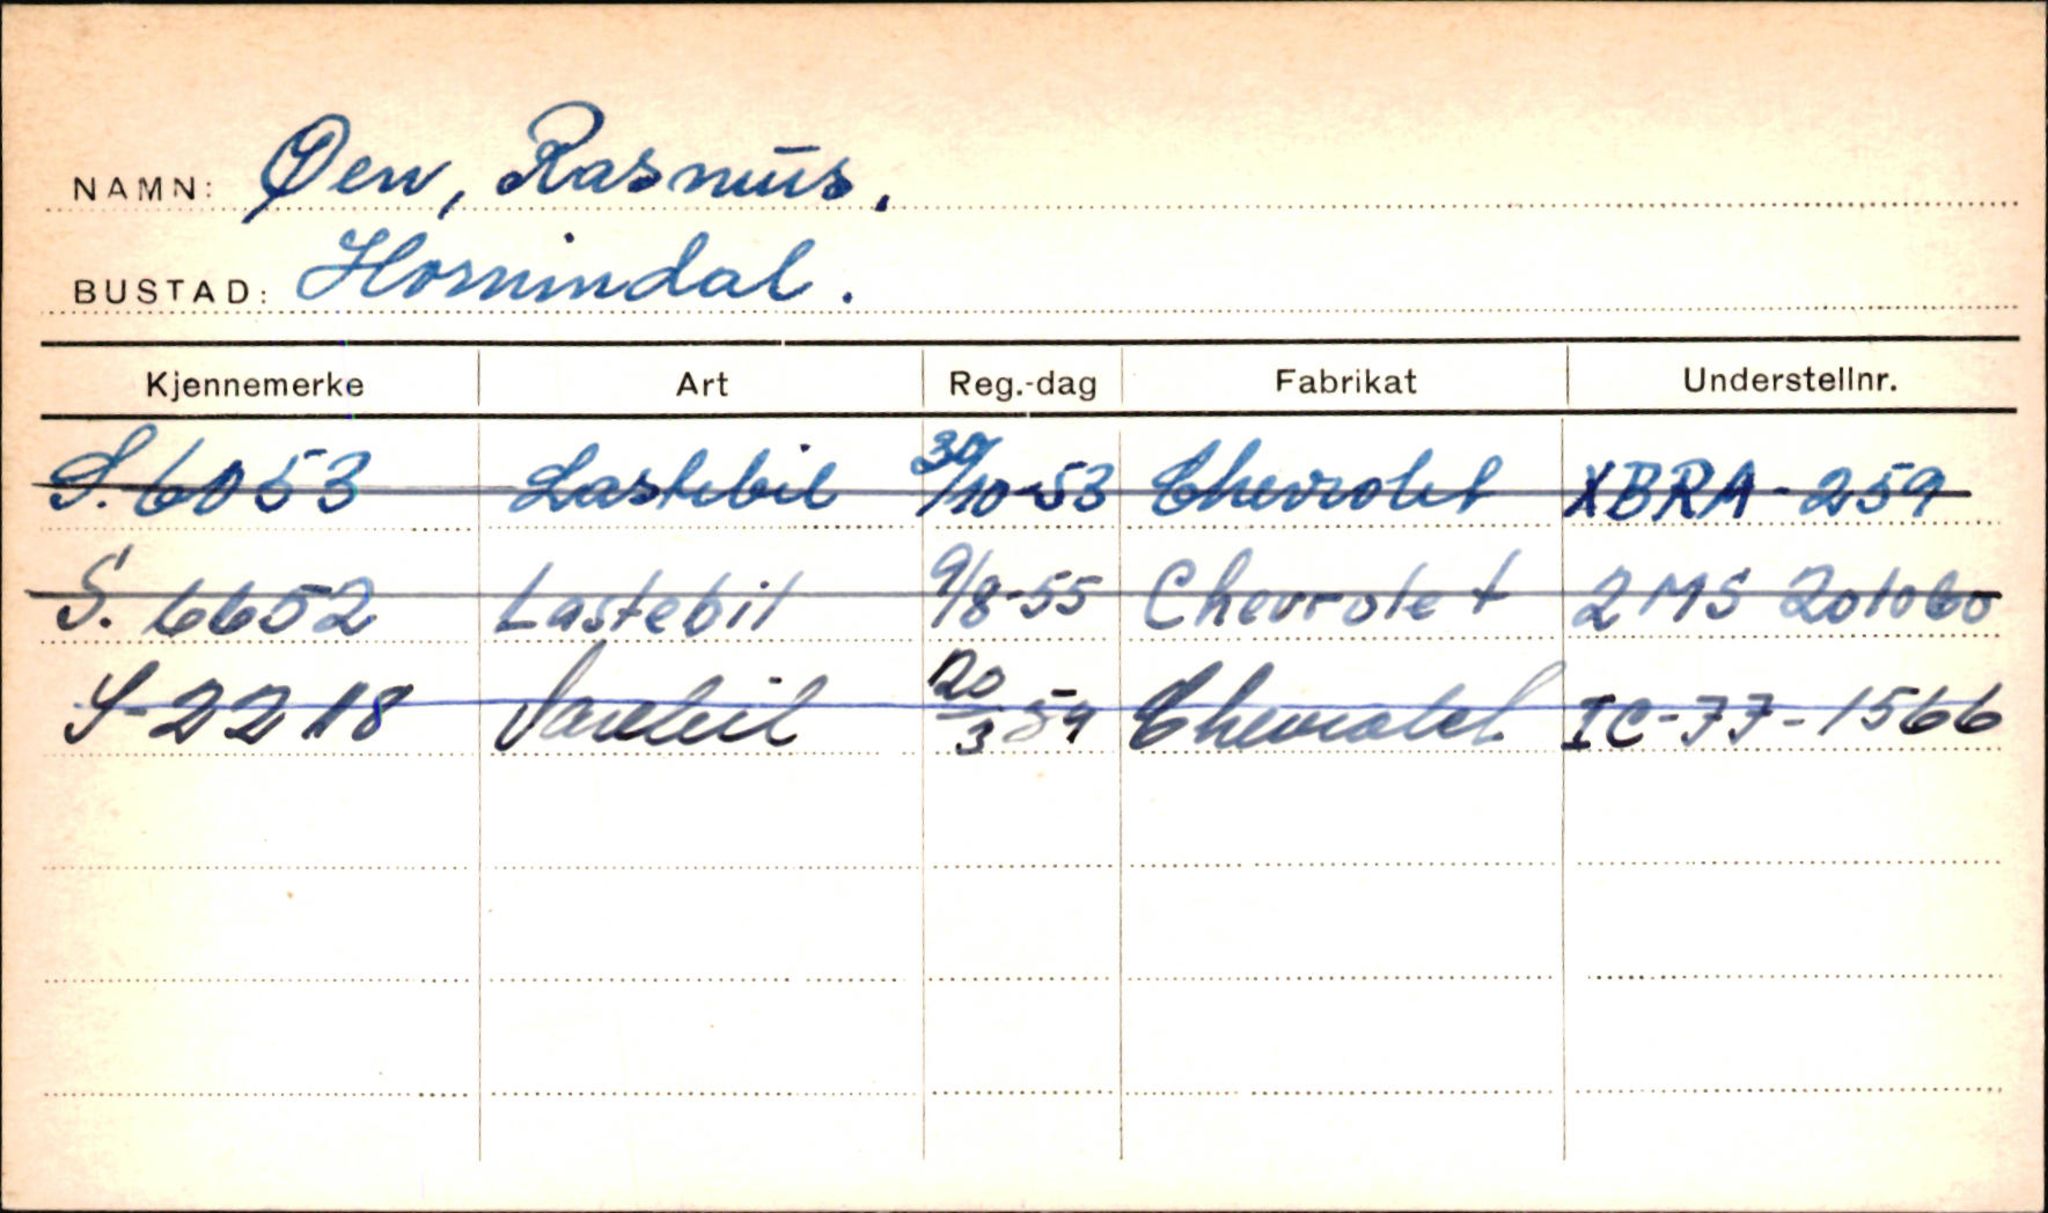 NAMN: Øen, Rasmus.
BUSTAD: Hornindal.
Kjennemerke Art Reg.-dag Fabrikat Understellnr.
S. 6053 Lastebil 30/10-53 Chevrolet XBRA-259
S. 6652 Lastebil 9/8-55 Chevrolet 2 MS 201060
S-2218 Varebil 20/3 59 Chevrolet. IC-77-1566